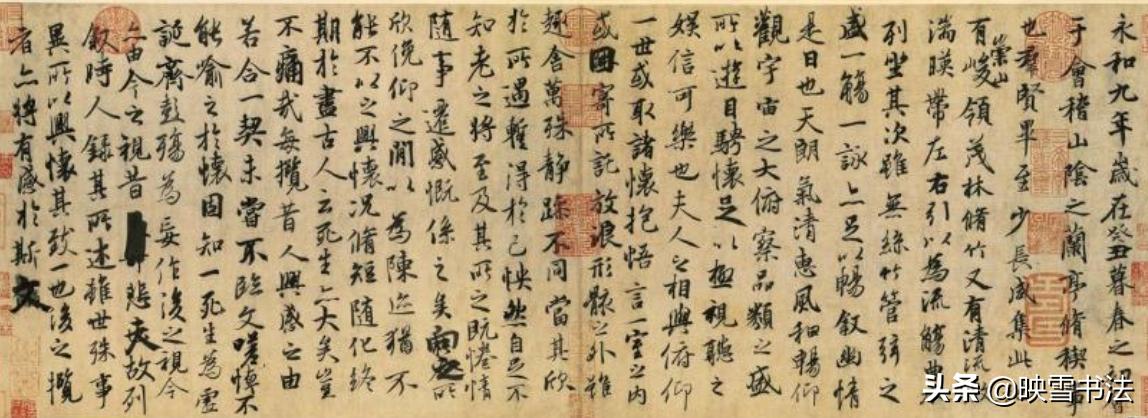 永和九年歲在癸丑暮春之初
于會稽山陰之蘭亭脩稧事
也羣賢畢至少長咸集此
有崇山峻領茂林脩竹又有清流
湍暎帶左右引以為流觴曲
列坐其次雖無絲竹管弦之
盛一觴一詠亦足以暢敘幽情
是日也天朗氣清惠風和暢仰
觀宇宙之大俯察品類之盛
所以遊目騁懷足以極視聽之
娛信可樂也夫人之相與俯仰
一世或取諸懷抱悟言一室之內
或因寄所託放浪形骸之外雖
趣舍萬殊靜躁不同當其欣
於所遇蹔得於己怏然自足不
知老之將至及其所之既惓情
隨事遷感慨係之矣向之所
欣俛仰之閒以為陳迹猶不
能不以之興懷況脩短隨化終
期於盡古人云死生亦大矣豈
不痛哉每攬昔人興感之由
若合一契未嘗不臨文嗟悼不
能喻之於懷固知一死生為虛
誕齊彭殤為妄作後之視今
亦由今之視昔悲夫故列
敘時人錄其所述雖世殊事
異所以興懷其致一也後之攬
者亦將有感於斯文
头条 @映雪书法